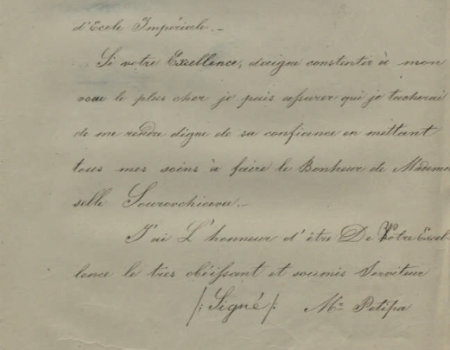 d'Ecole Impériale.-
Si votre Excellence, daigne constentir à mon
vœu le plus cher je puis assurer qui je tacherai
de me rendre digne de sa confience en méttant
tous mes soins à faire le Bonheur de Mademoi
selle Sourovchicova.-
J'ai L'honneur d'être De Votre Excel-
lence le très obéissant et soumis Serviteur
/: Signé /: Ms Petipa